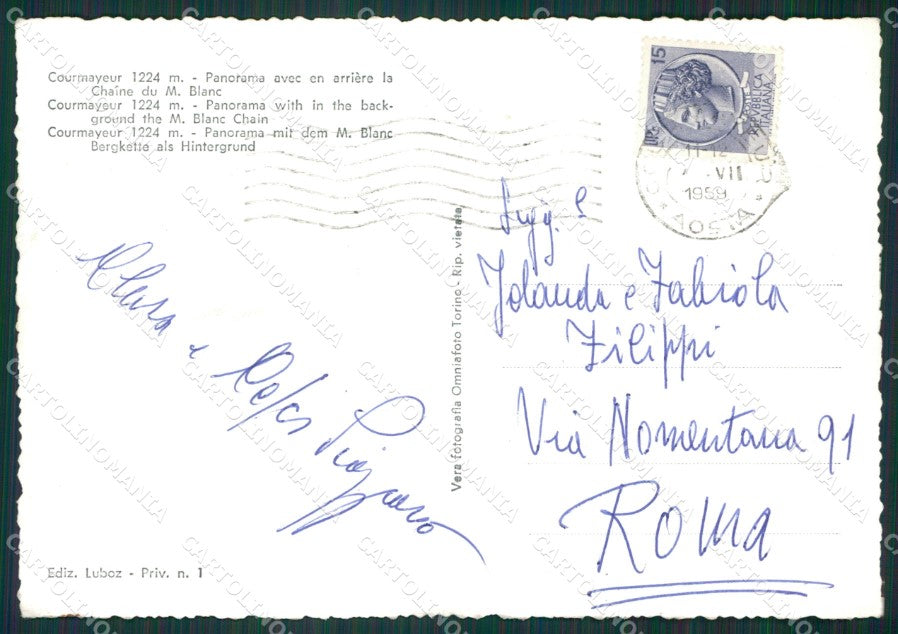 Courmayeur 1224 m. - Panorama avec en arrière la
Chaîne du M. Blanc
Courmayeur 1224 m. - Panorama with in the back-
ground the M. Blanc Chain
Courmayeur 1224 m. - Panorama mit dem M. Blanc
Bergkette als Hintergrund
15
REPVBBLICA
ITALIANA
VII
1959
AOSTA
Vera fotografia Omniafoto Torino - Rip. vietata
Jolanda e Fabiola
Filippi
Via Nomentana 91
ROMA
Clara e
Ediz. Luboz - Priv. n. 1
CARTOLINOMANIA